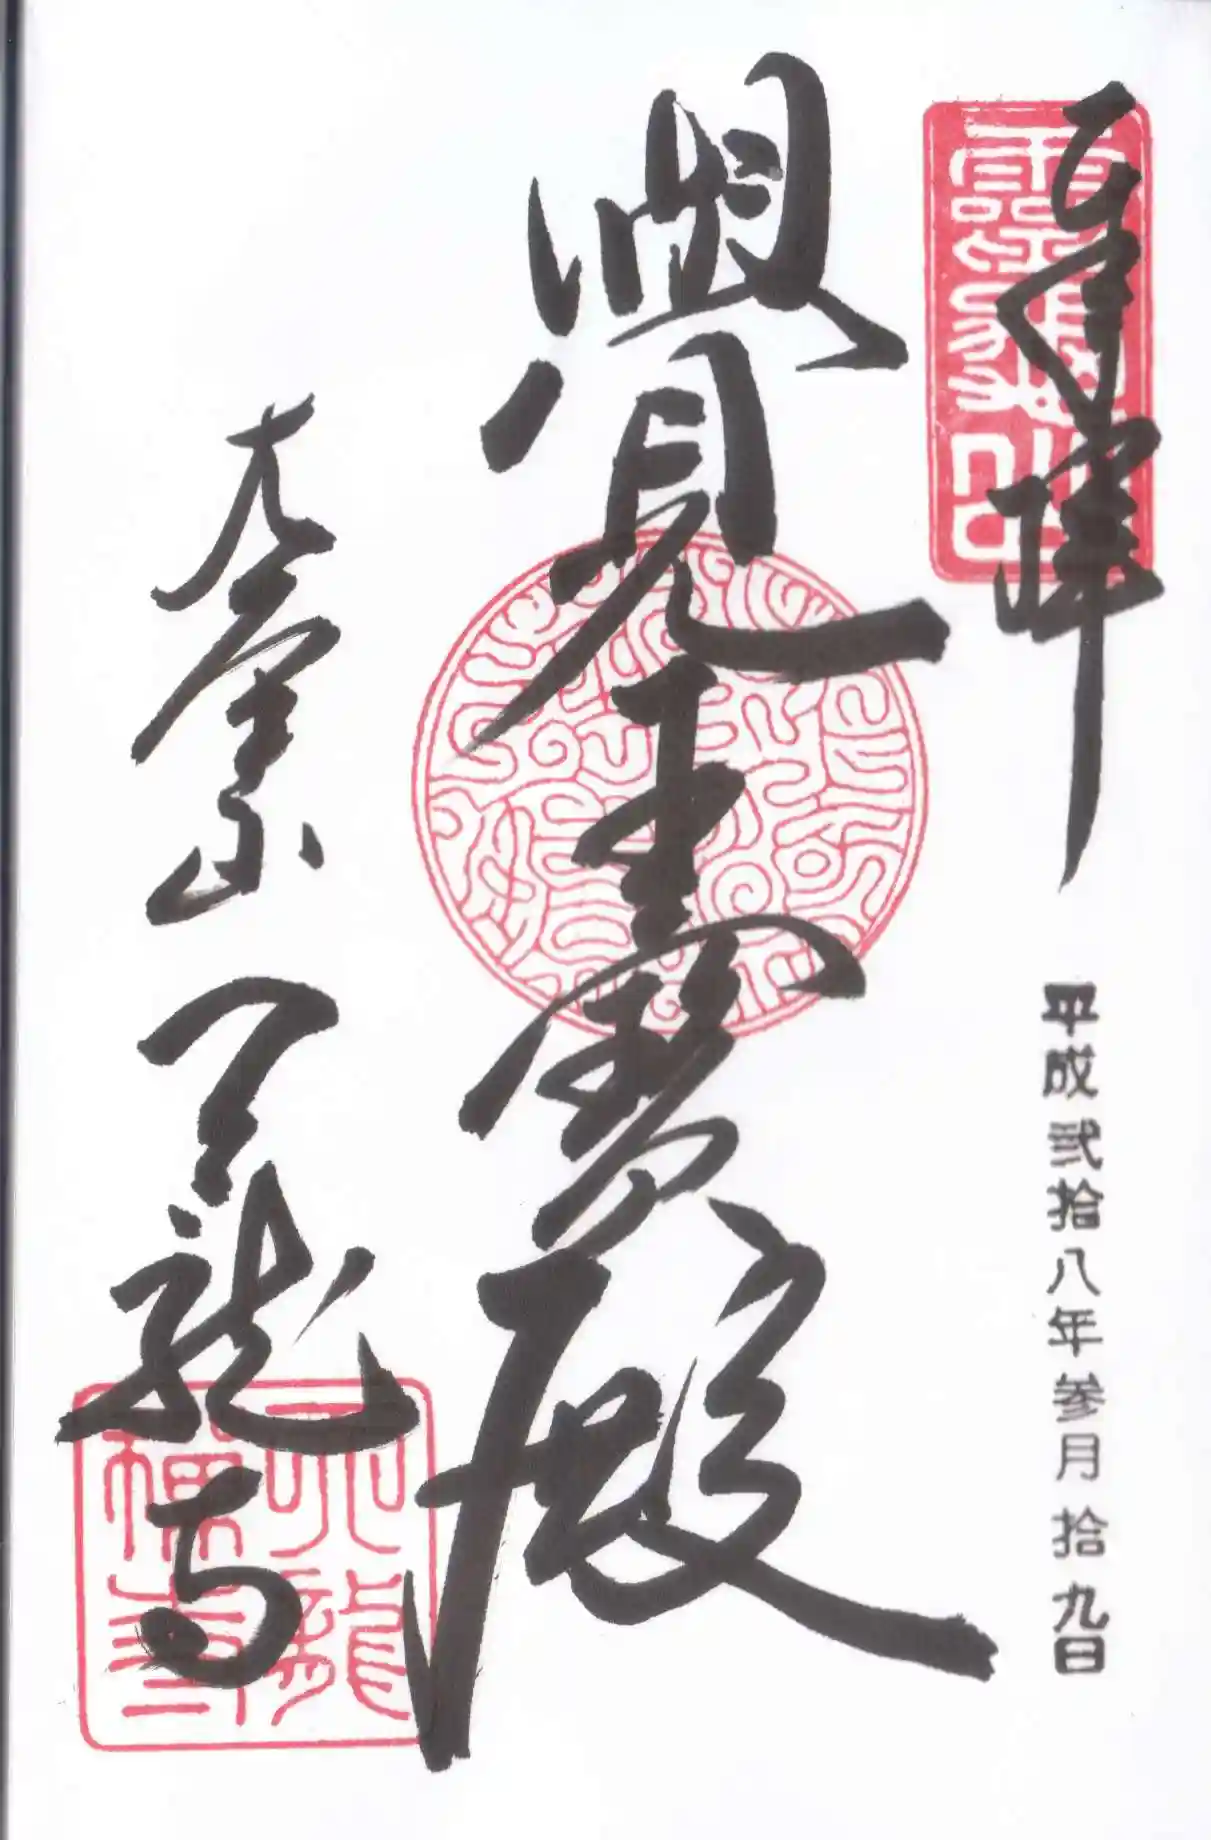 奉拝
平成弐拾八年参月拾九日
覺王寶殿
天龍寺
天龍
禪寺